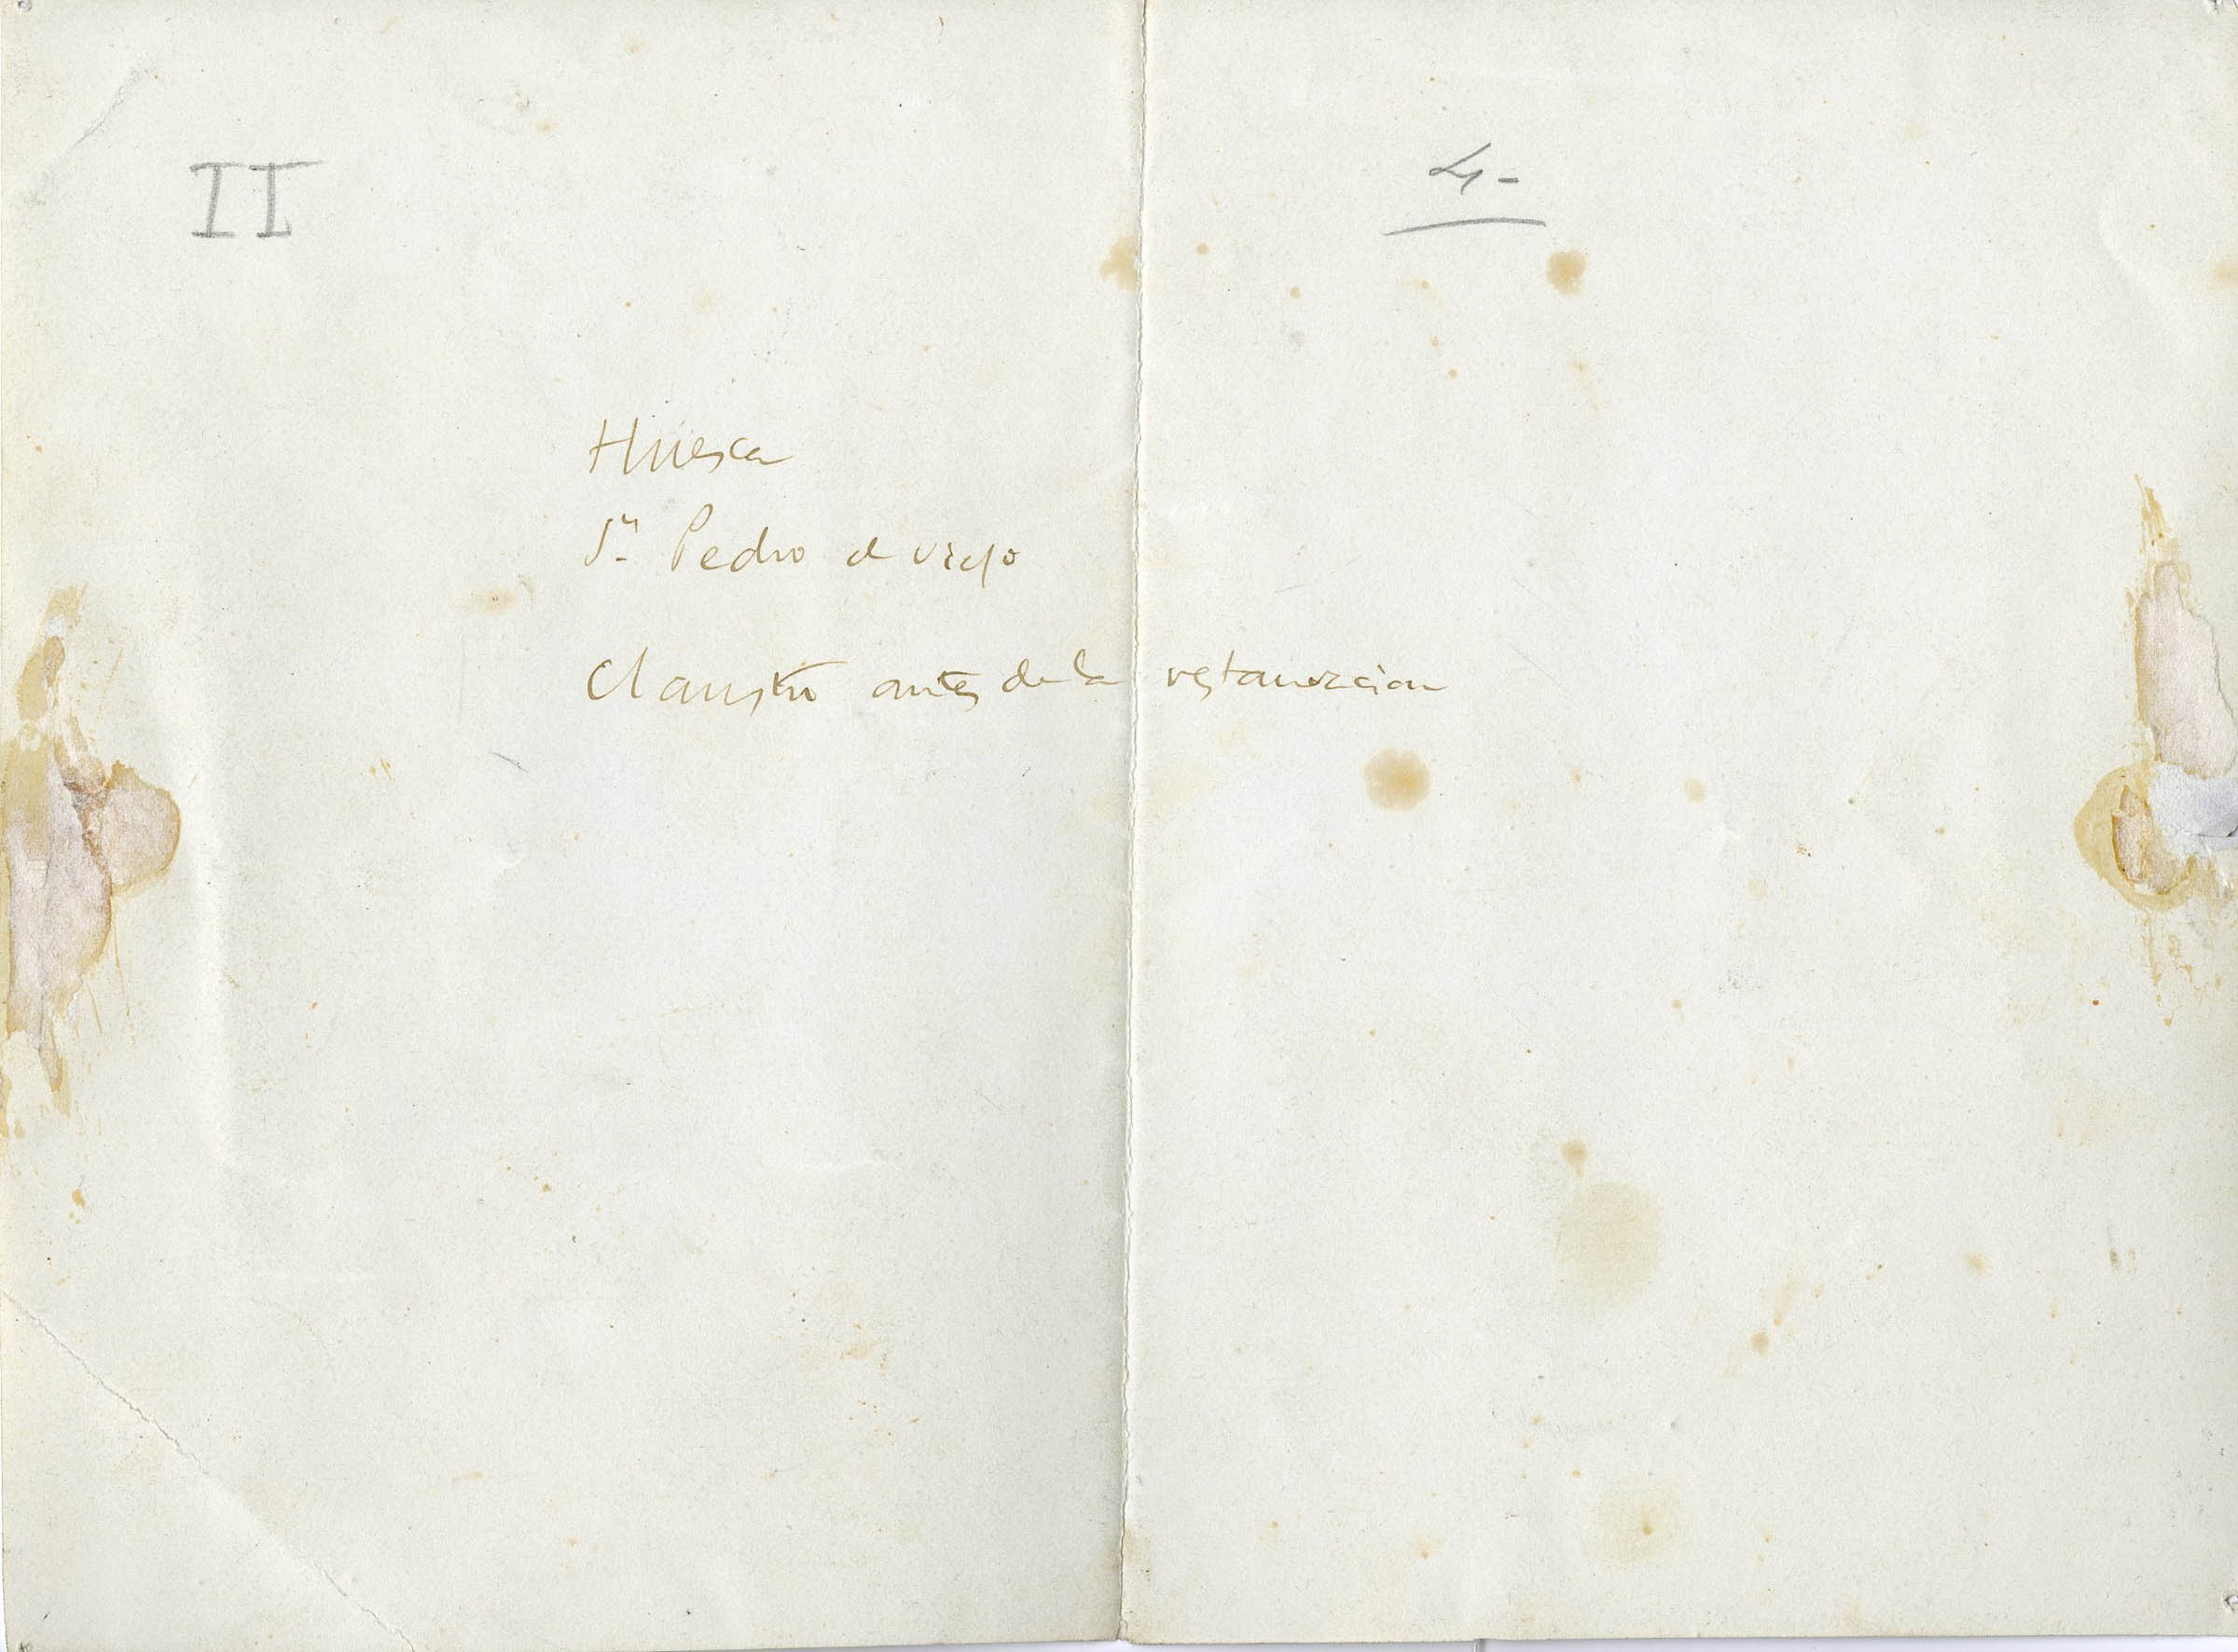 II
4-
Huesca
Sn Pedro el viejo
Claustro antes de la restauracion